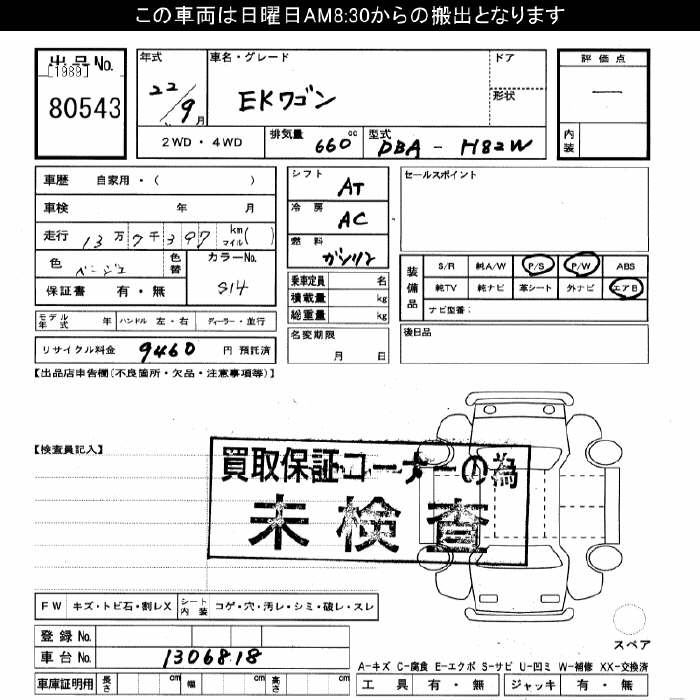 この車両は日曜日AM8:30からの搬出となります
出品No.
[1989]
80543
年式
22/9月
車名・グレード
EKワゴン
ドア
形状
評価点
—
内装
2WD・4WD
排気量 660cc
型式 DBA - H82W
車歴 自家用・( )
車検 年 月
走行 13万7千397 km マイル( )
色 ベージュ 色替
カラーNo.
S14
保証書 有・無
シフト AT
冷房 AC
燃料 ガソリン
乗車定員 名
積載量 kg
総重量 kg
セールスポイント
装備品
S/R 純A/W P/S P/W ABS
純TV 純ナビ 革シート 外ナビ エアB
ナビ型番:
モデル年式 年 ハンドル 左・右 ディーラー・並行
名変期限
月 日
後日品
リサイクル料金 9460 円 預託済
【出品店申告欄(不良箇所・欠品・注意事項等)】
【検査員記入】
買取保証コーナーの為
未検査
FW キズ・トビ石・割レX
シート内装 コゲ・穴・汚レ・シミ・破レ・スレ
スペア
登録No.
車台No. 1306818
A-キズ C-腐食 E-エクボ S-サビ U-凹ミ W-補修 XX-交換済
車庫証明用 長さ cm 幅 cm 高さ cm
工具 有・無 ジャッキ 有・無